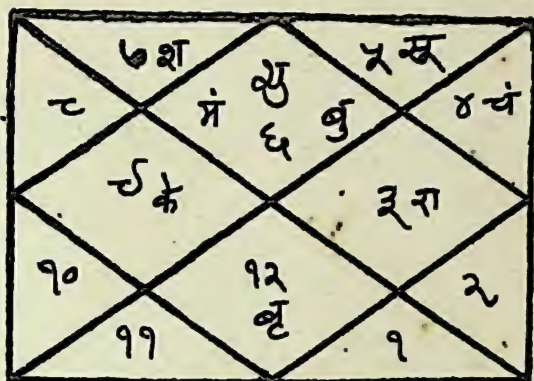 ७ श
शु
५ सू
८
मं
६
बु
४ चं
९ के
३ रा
१०
१२
बृ
२
११
१